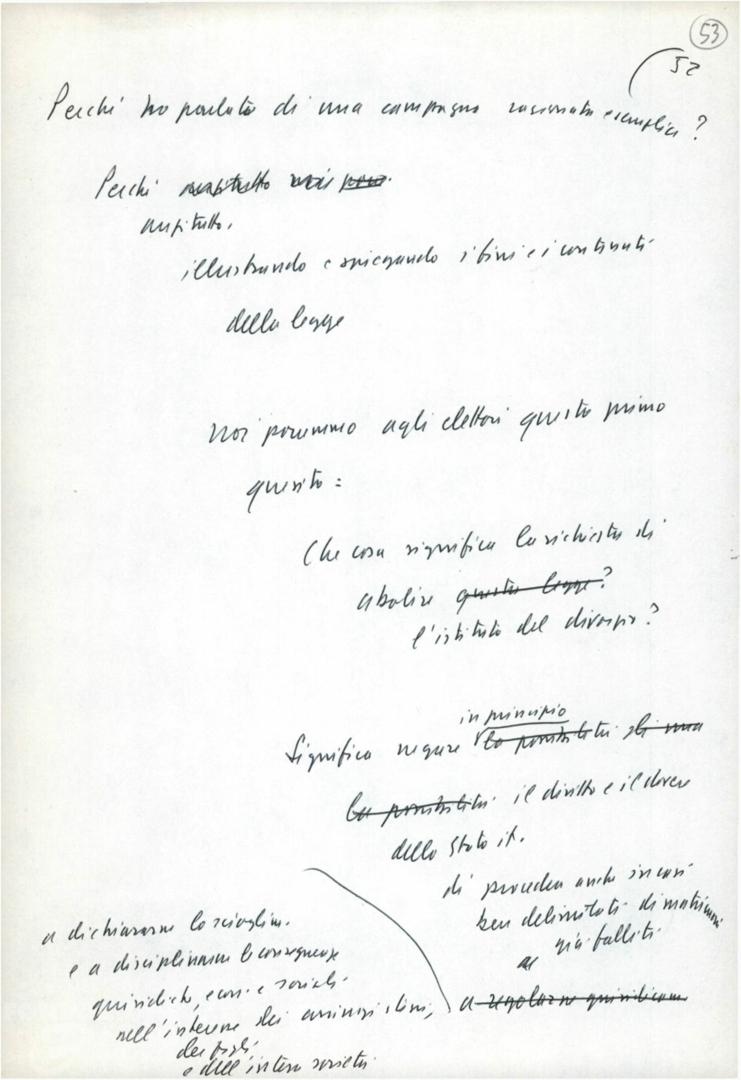 53
52
Perché ho parlato di una campagna ragionata e semplice?
Perché anzitutto noi
anzitutto,
illustrando e spiegando i fini e i contenuti
della legge
noi poniamo agli elettori questo primo
quesito:
Che cosa significa la richiesta di
abolire questa legge?
l'istituto del divorzio?
in principio
Significa negare la possibilità di una
la possibilità il diritto e il dovere
dello Stato it.
di procedere anche in casi
ben delimitati di matrimoni
già falliti
a dichiararne lo scioglim.
e a disciplinarne le conseguenze
giuridiche, econ. e sociali
nell'interesse dei coniugi stessi, a regolarne giuridicam.
dei figli
e dell'intera società